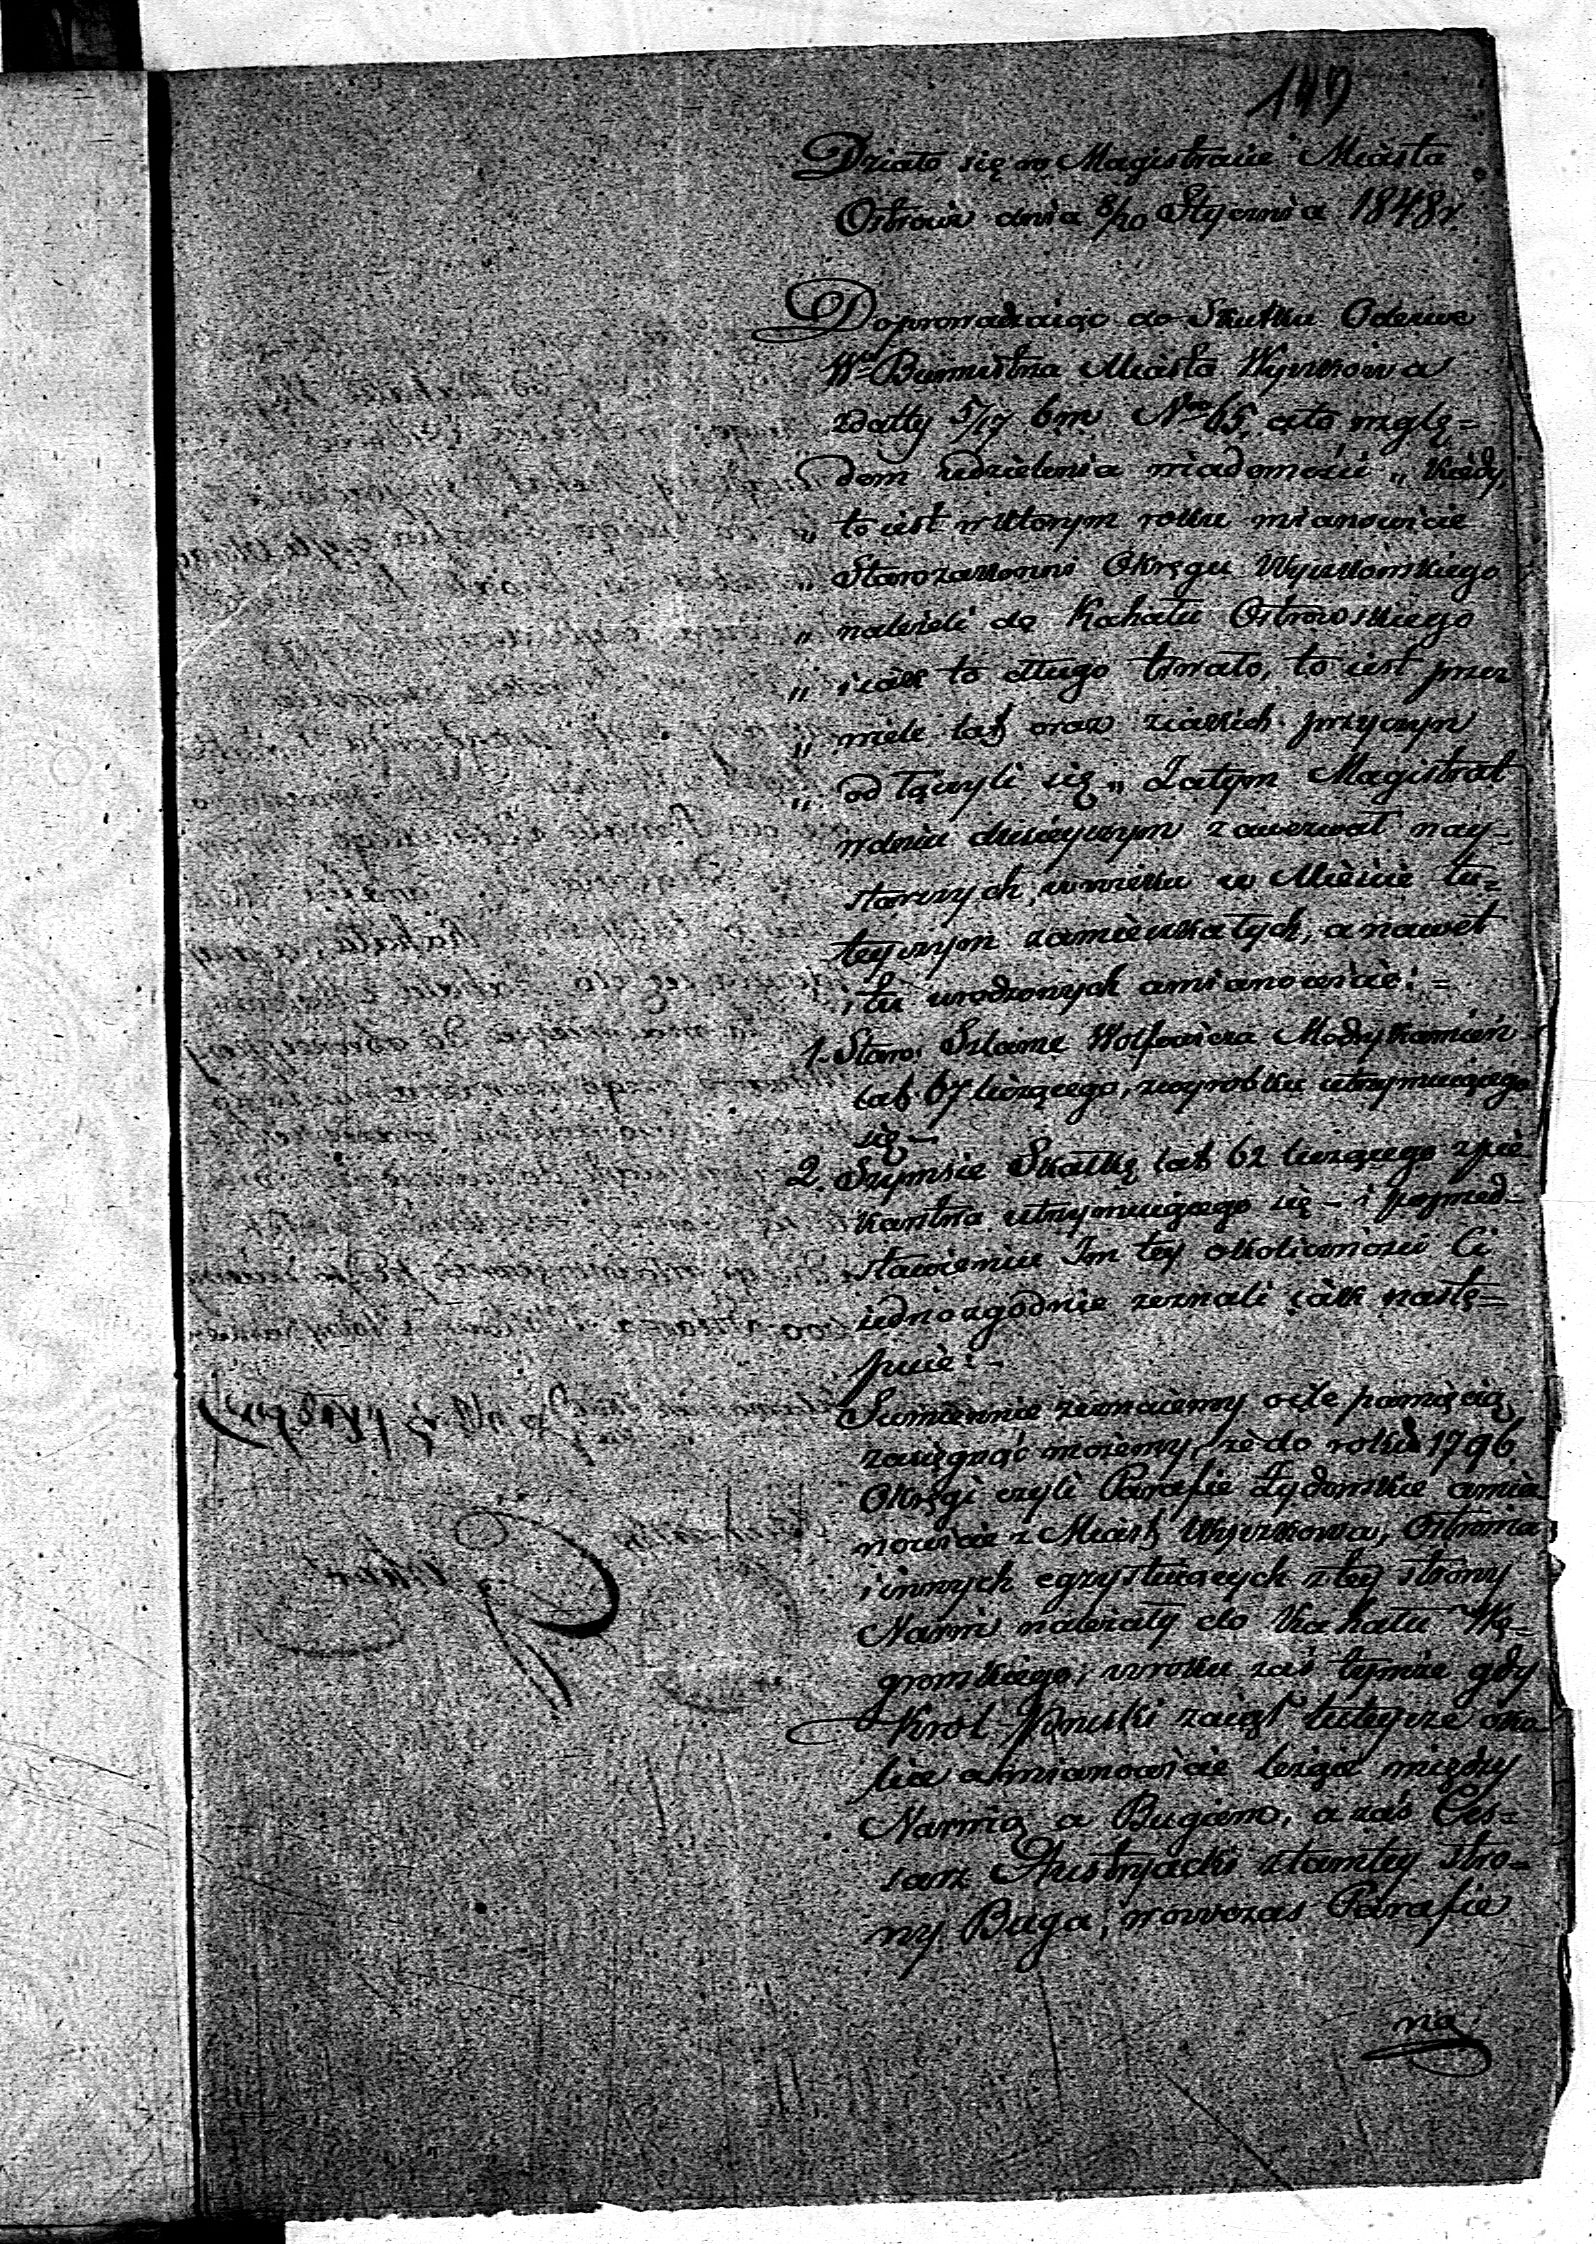 147
Działo się w Magistracie Miasta
Ostrowi dnia 8/20 Stycznia 1848 r.
Doprowadzaiąc do Skutku Odezwe
Wo Burmistrza Miasta Wyszkowa
z datty 5/17 b m No 65, co to wzglę=
dem udzielenia wiadomości „ Kiedy,
„ to iest w którym roku mianowicie
„ Starozakonni Okręgu Wyszkowskiego
„ należeli do Kahału Ostrowskiego
„ i iak to długo trwało, to iest przez
„ wiele lat oraz z iakich przyczyn
„ od łączyli się „ Zatym Magistrat
w dniu dzisieyszym zawezwał nay=
starszych w wieku w Mieście tu=
teyszym zamieszkałych, a nawet
i tu urodzonych a mianowicie: =
1. Staro: Szlame Wolfowicza Modrykamień
lat 67 liczącego, z wyrobku utrzymuiącego
się –
2. Szymsie Skałkę lat 62 liczącego z pie=
karstwa utrzymuiącego się – i po przed=
stawieniu Im tey okoliczności Ci
iedno zgodnie zeznali iak nastę=
puie: –
Sumiennie zeznaiemy o ile pamięcią
zasięgnąć możemy, że do roku 1796
Okręgi czyli Parafie Żydowskie a mia
nowicie z Miast Wyszkowa, Ostrowia
i innych egzystuiących z tey strony
Narwi należały do Kahału Wę=
growskiego, w roku zaś tymże gdy
Krol Pruski zaiął tuteysze oko
lice a mianowicie leżące między
Narwią a Bugiem, a zaś Ces=
sarz Austryacki z tamtey stro=
ny Buga, w ówczas Parafie
na